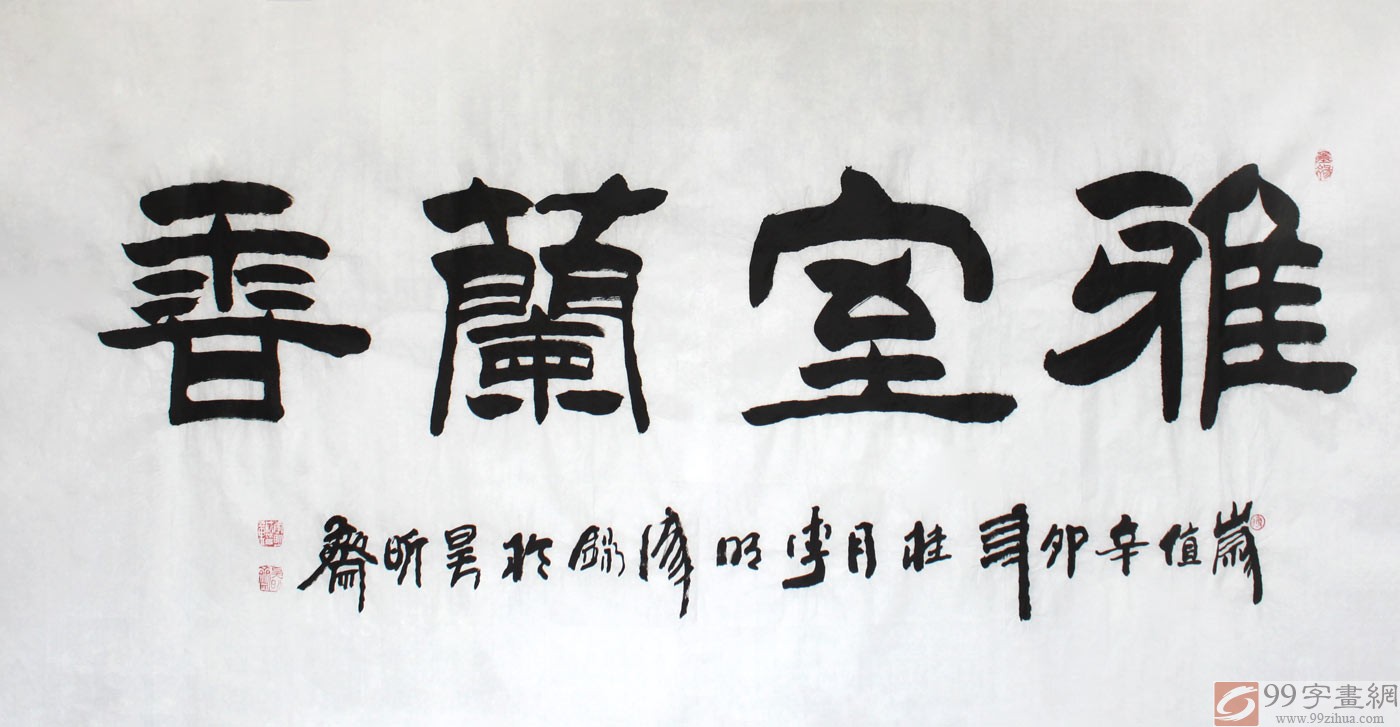 雅室蘭香
歲值辛卯年桂月李明彦錦於昊昕齋
99字畫網
www.99zihua.com